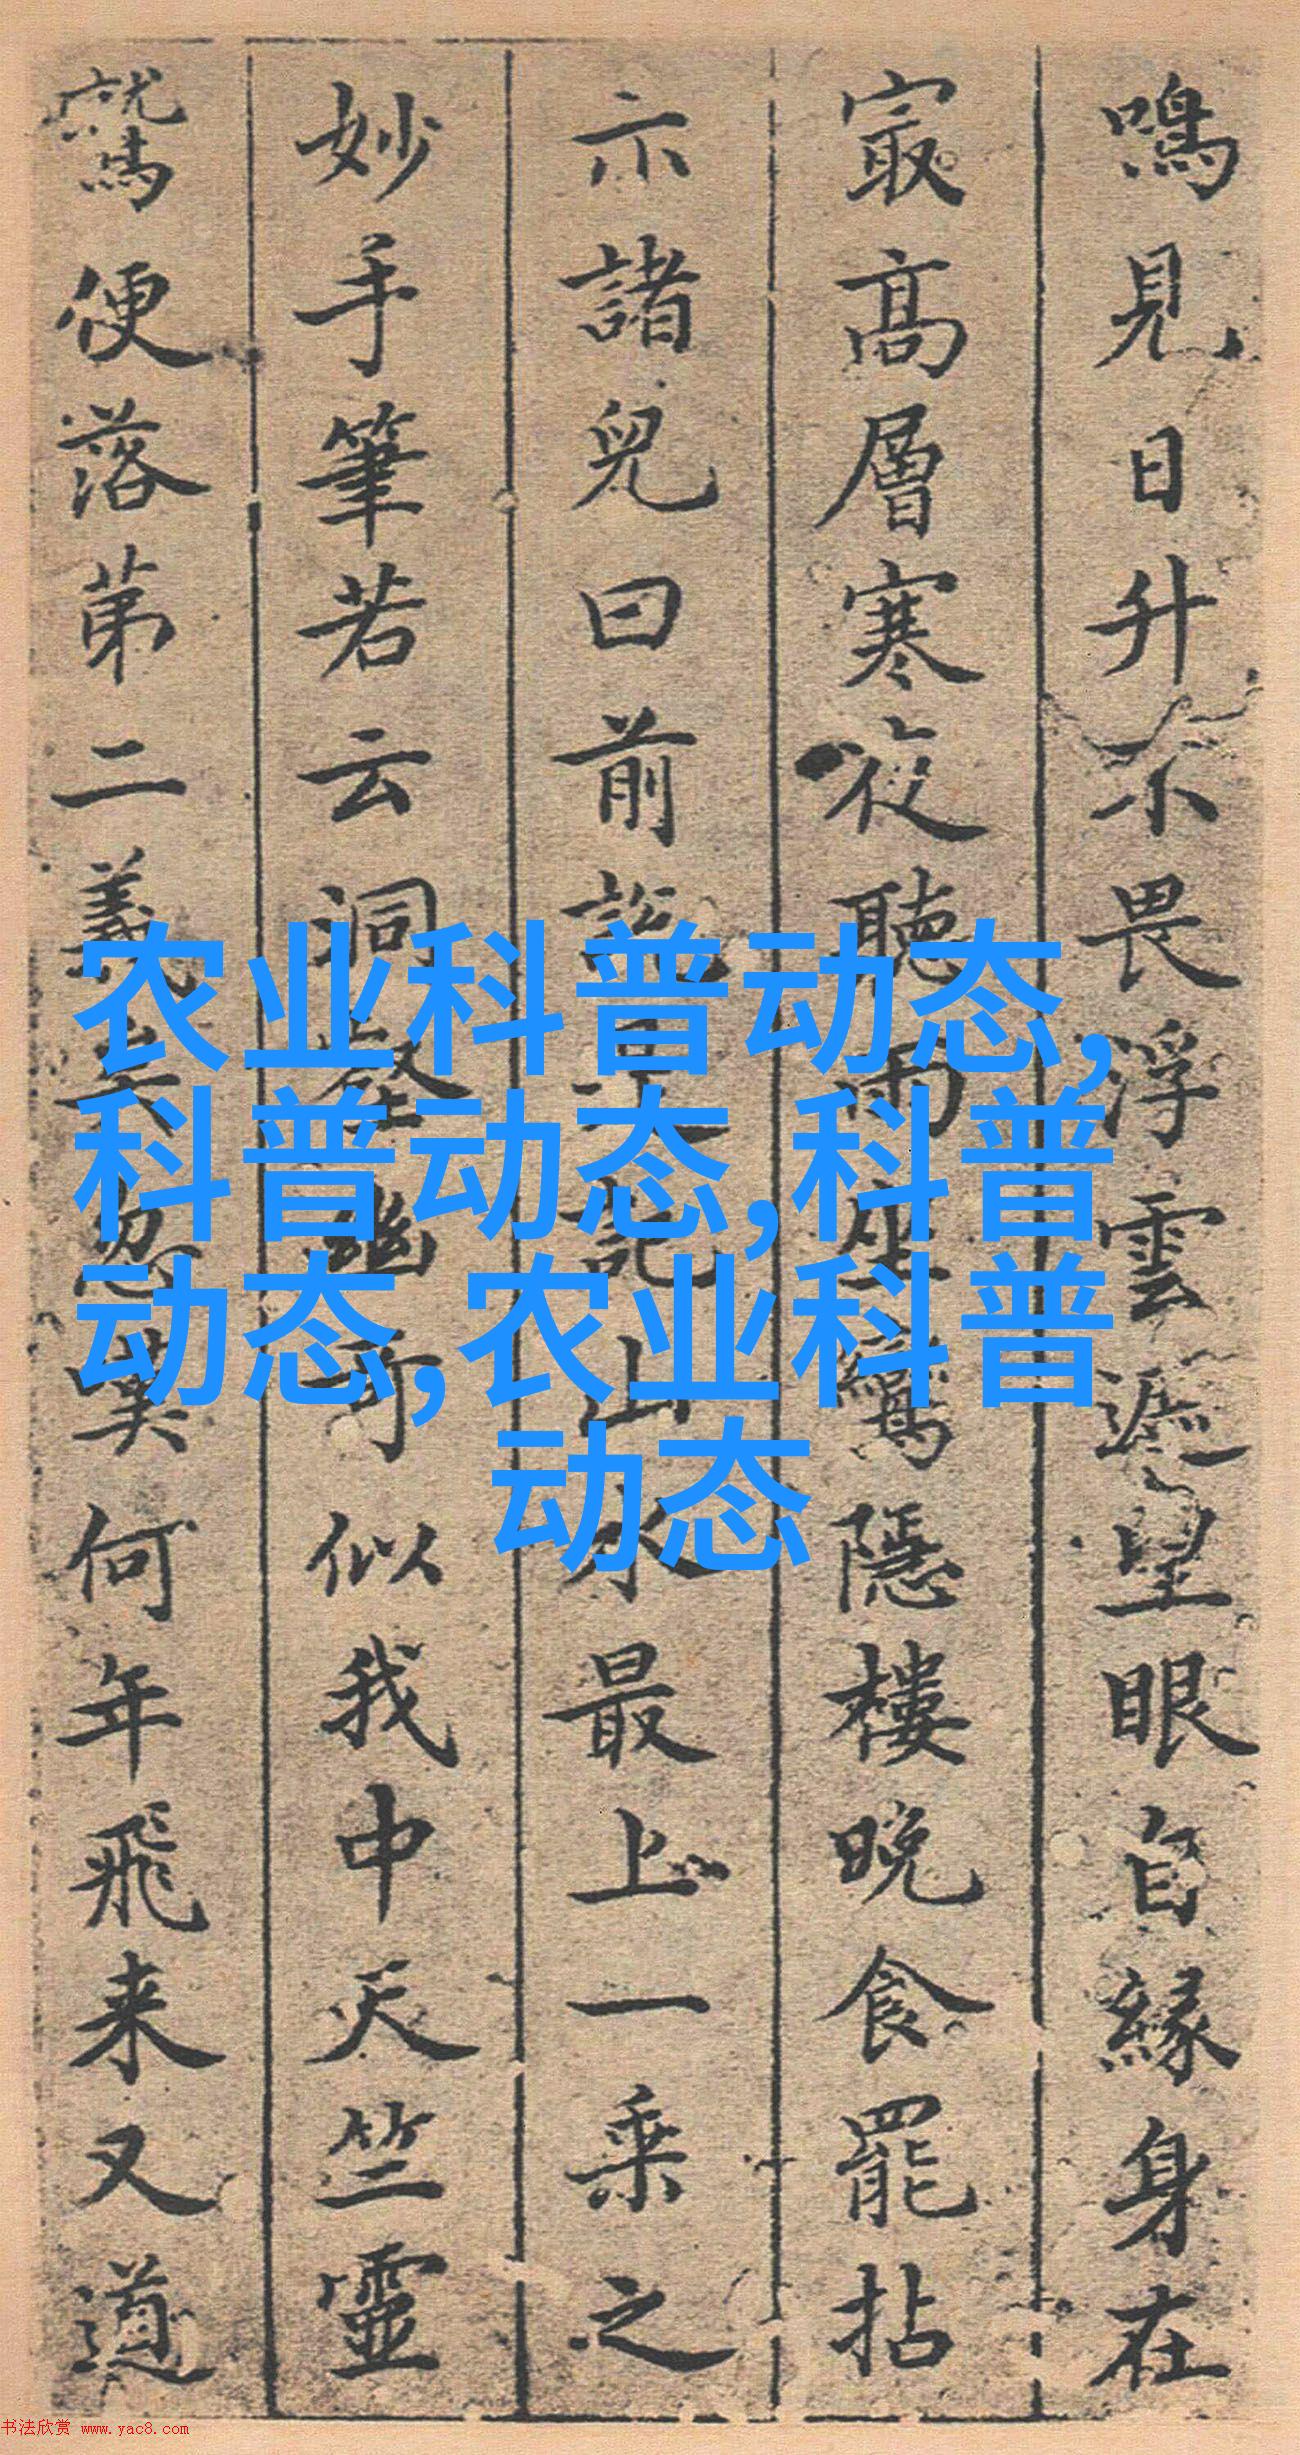 鳴見日升不畏浮雲遮望眼自緣身在
㝡高層寒夜聽雨坐隱樓晚食罷拈
示諸兒曰前記山水最上一乘之
妙手筆若云洞發幽奇似我中天竺靈
鷲便落第二義矣忽嘆何年飛来又道
农业科普动态,
科普动态,科普
动态,农业科普
动态
书法欣赏 www.yac8.com